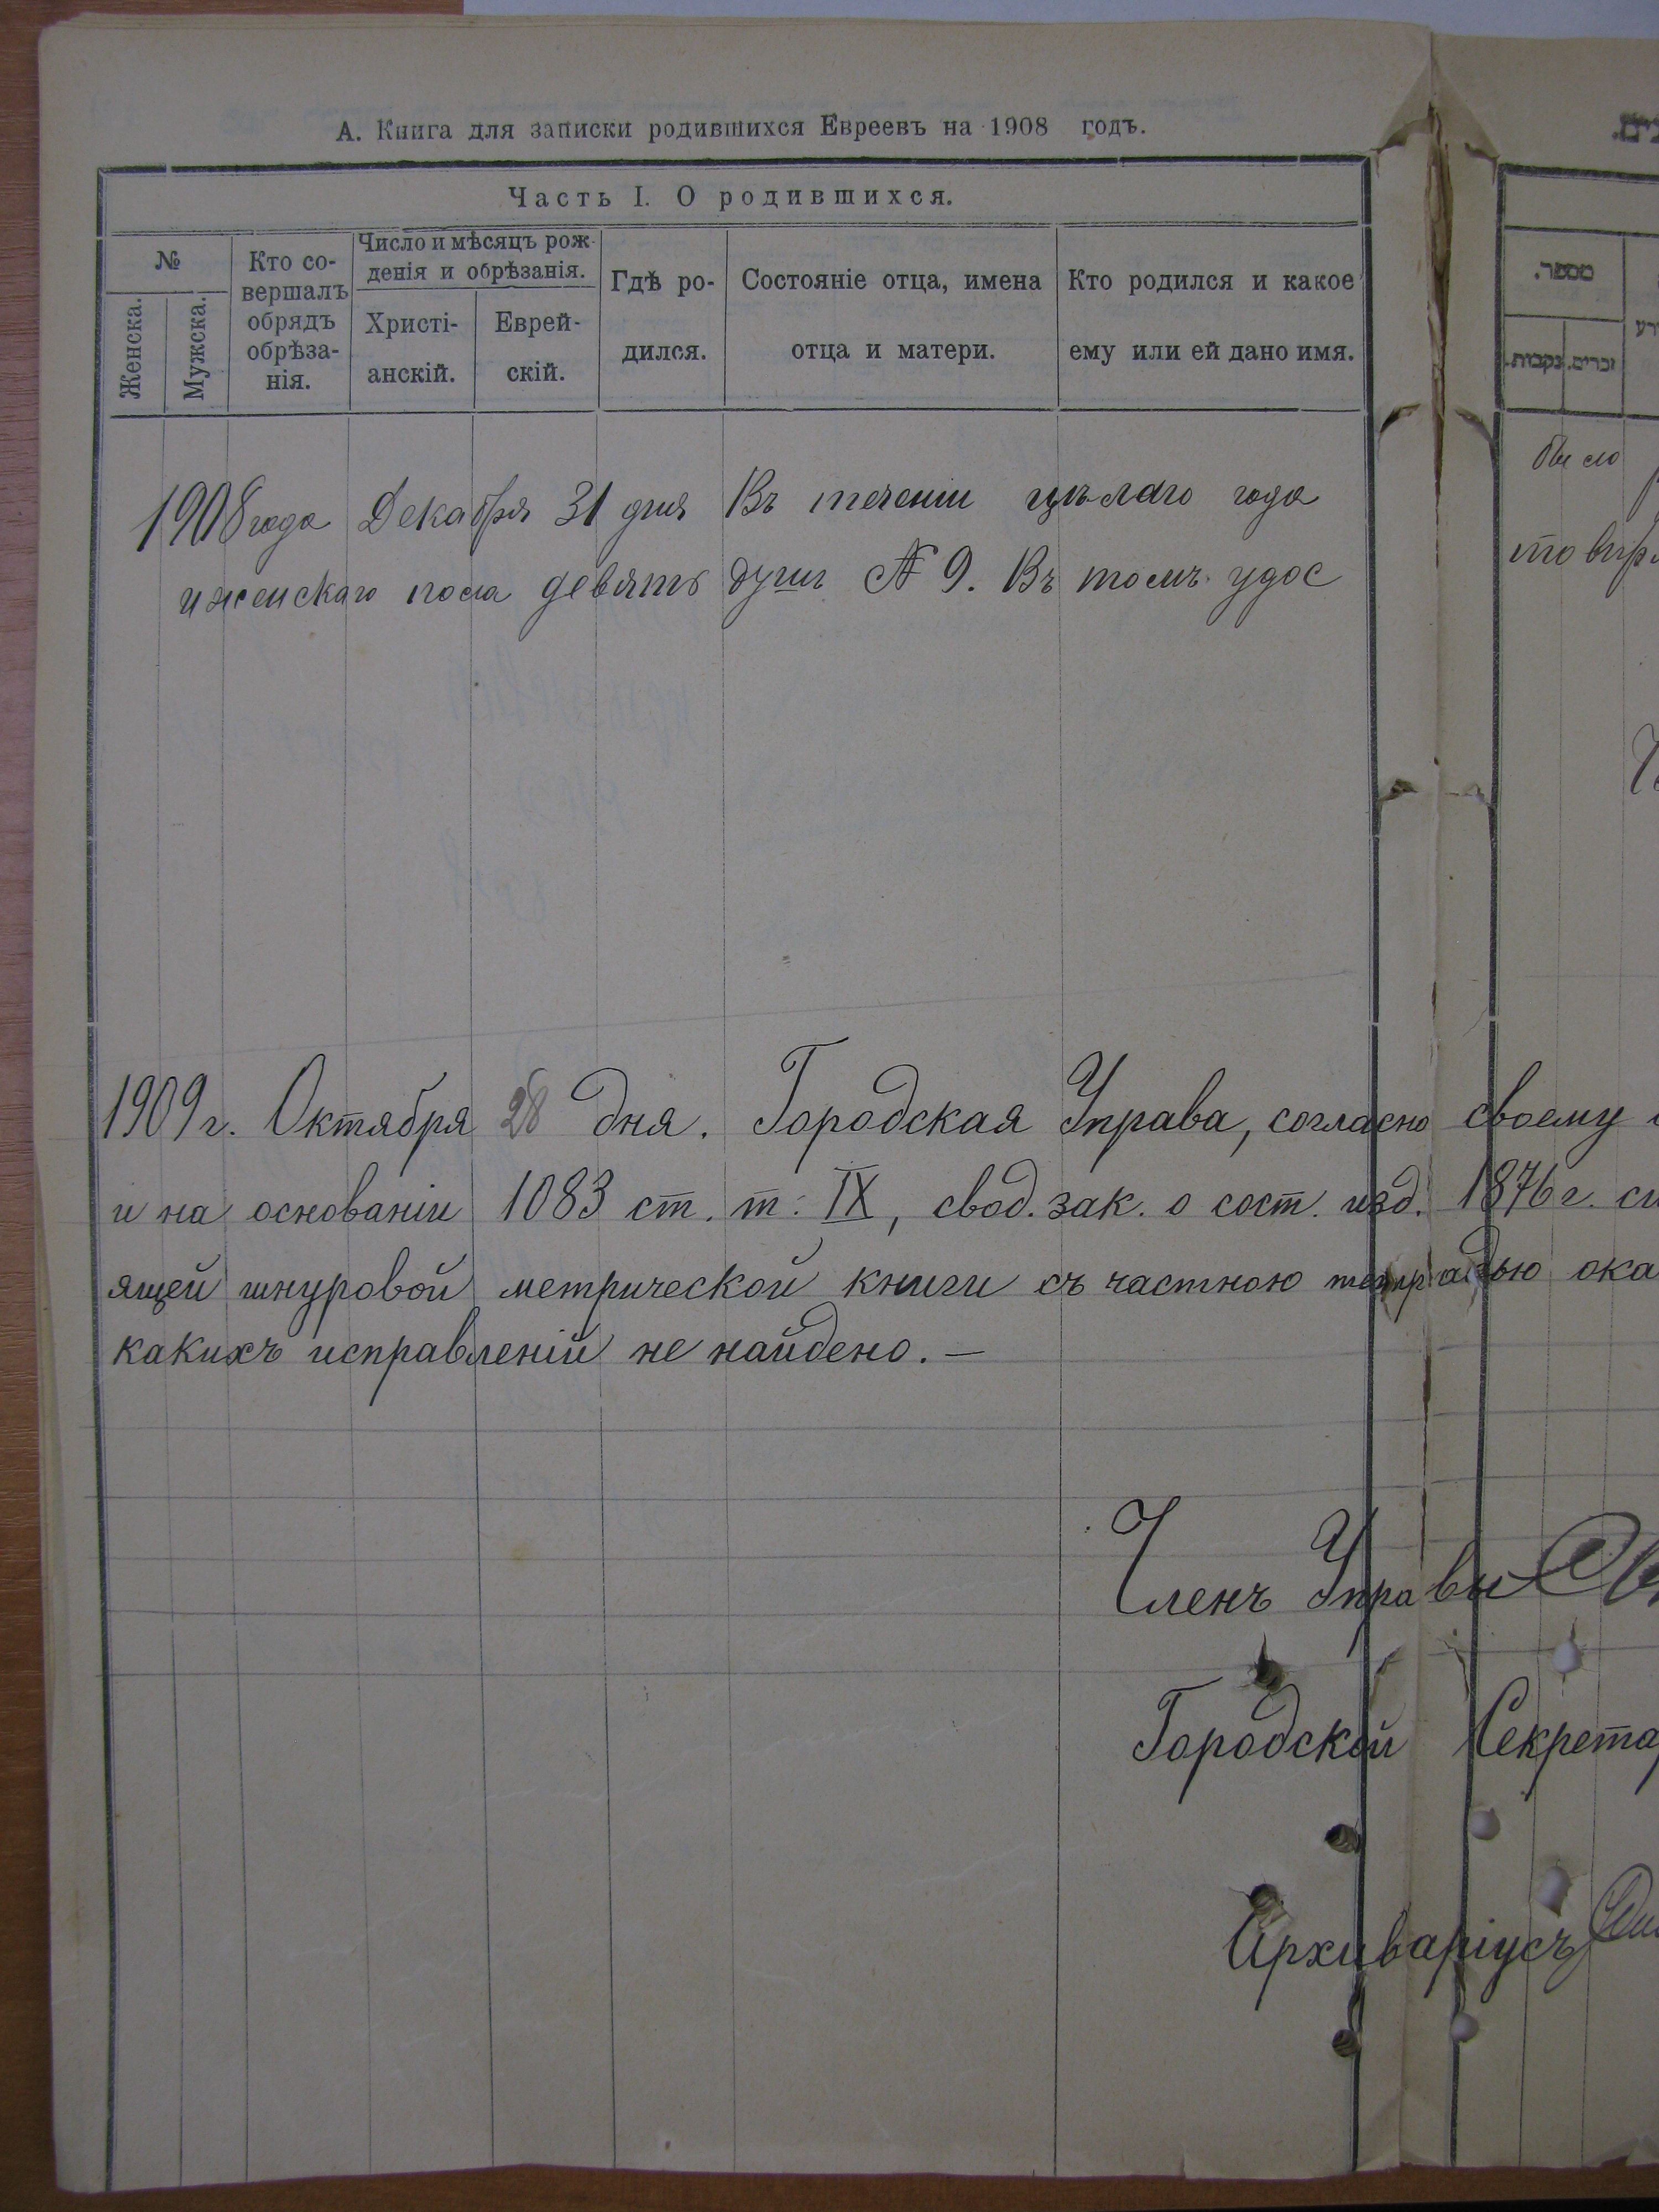 А. Книга для записки родившихся Евреевъ на 1908 годъ.
Часть I. О родившихся.
№
Женска.
Мужска.
Кто со-
вершалъ
обрядъ
обрѣза-
нія.
Число и мѣсяцъ рож-
денія и обрѣзанія.
Христі-
анскій.
Еврей-
скій.
Гдѣ ро-
дился.
Состояніе отца, имена
отца и матери.
Кто родился и какое
ему или ей дано имя.
מספר.
נקבות.
זכרים.
1908 года Декабря 31 дня Въ теченіи цѣлаго года было
и женскаго пола девять душъ № 9. Въ томъ удос
1909 г. Октября 28 дня. Городская Управа, согласно своему
и на основаніи 1083 ст. т. IX, свод. зак. о сост. изд. 1876 г.
ящей шнуровой метрической книги съ частною тетрадью ока
какихъ исправленій не найдено. —
Членъ Управы
Городской Секрета
Архиваріусъ